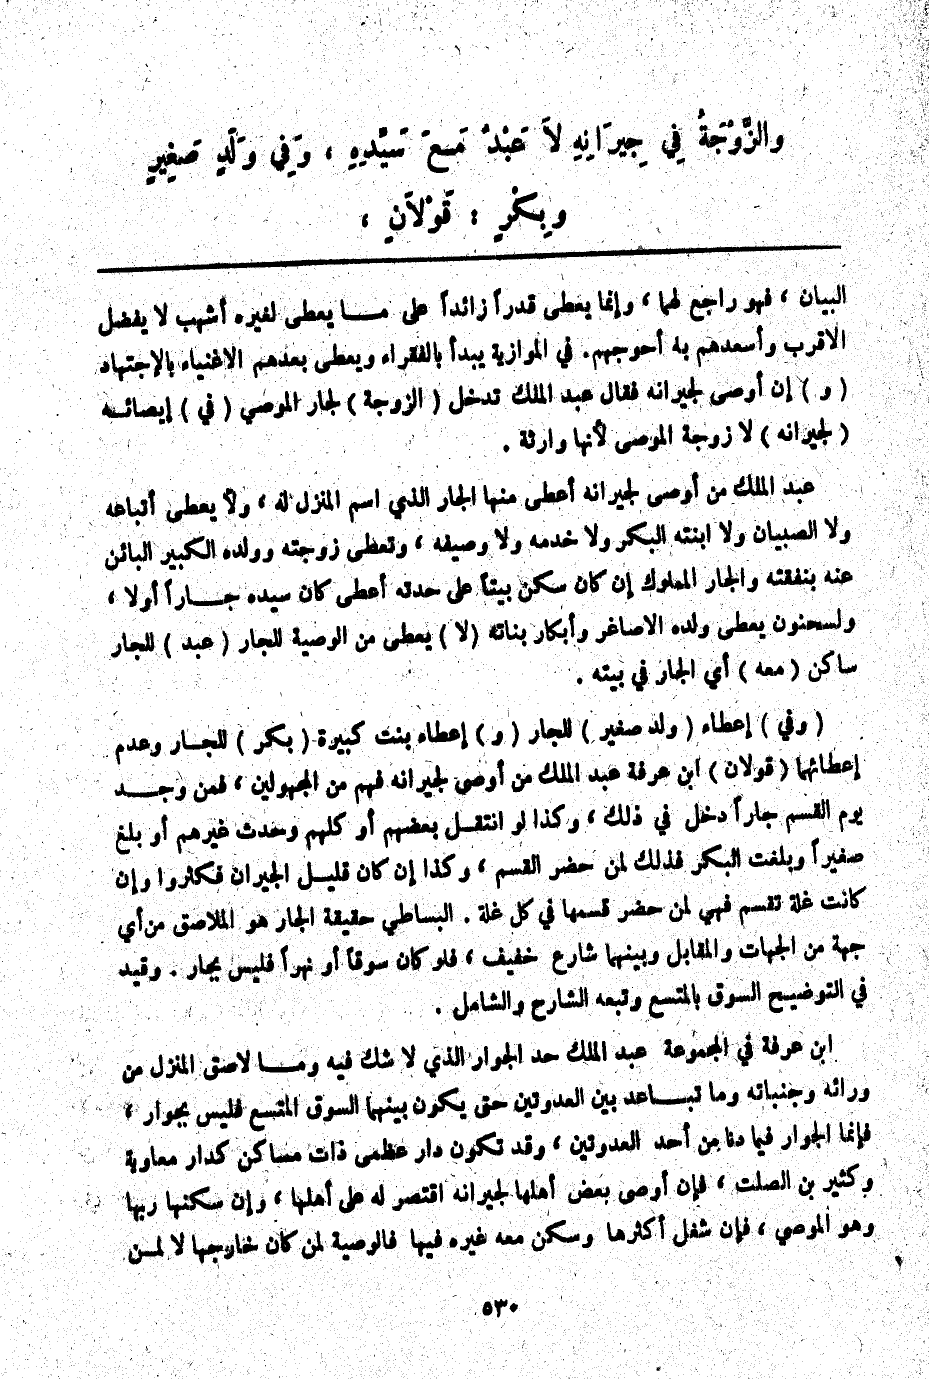 والزَّوْجَةُ فِي جِيرَانِهِ لاَ عَبْدٌ مَعَ سَيِّدِهِ ، وَفِي وَلَدٍ صَغِيرٍ
وبِكْرٍ : قَوْلاَنِ ،
البيان ، فهو راجع لهما ، وإنما يعطى قدراً زائداً على مـــا يعطى لغيره أشهب لا يفضل
الاقرب وأسعدهم به أحوجهم. في الموازية يبدأ بالفقراء ويعطى بعدهم الاغنياء بالإجتهاد
( و ) إن أوصى لجيرانه فقال عبد الملك تدخل ( الزوجة ) لجار الموصي ( في ) إيصائــه
( لجيرانه ) لا زوجة الموصى لأنها وارثة .
عبد الملك من أوصى لجيرانه أعطى منها الجار الذي اسم المنزل له ، ولا يعطى أتباعه
ولا الصبيان ولا ابنته البكر ولا خدمه ولا وصيفه ، وتعطى زوجته وولده الكبير البائن
عنه بنفقته والجار المملوك إن كان سكن بيتاً على حدته أعطى كان سيده جـــاراً أولا ،
ولسحنون يعطى ولده الاصاغر وأبكار بناته ( لا ) يعطى من الوصية للجار ( عبد ) للجار
ساكن ( معه ) أي الجار في بيته .
( وفي ) إعطاء ( ولد صغير ) للجار ( و ) إعطاء بنت كبيرة ( بكر ) للجــار وعدم
إعطائهما ( قولان ) ابن عرفة عبد الملك من أوصى لجيرانه فهم من المجهولين ، فمن وجـــد
يوم القسم جاراً دخل في ذلك ، وكذا لو انتقــل بعضهم أو كلهم وحدث غيرهم أو بلغ
صغيراً وبلغت البكر فذلك لمن حضر القسم ، وكذا إن كان قليــل الجيران فكثروا وإن
كانت غلة تقسم فهي لمن حضر قسمها في كل غلة . البساطي حقيقة الجار هو الملاصق من أي
جهة من الجهات والمقابل وبينهما شارع خفيف ، فلو كان سوقاً أو نهراً فليس بجار . وقيد
في التوضيــح السوق بالمتسع وتبعه الشارح والشامل .
ابن عرفة في المجموعة عبد الملك حد الجوار الذي لا شك فيه ومـــا لاصق المنزل من
ورائه وجنباته وما تبـــاعد بين العدوتين حتى يكون بينهما السوق المتسع فليس بجوار ،
فإنما الجوار فيما دنا من أحد العدوتين ، وقد تكون دار عظمى ذات مساكن كدار معاوية
وكثير بن الصلت ، فإن أوصى بعض أهلها لجيرانه اقتصر له على أهلها ، وإن سكنها ربها
وهو الموصي ، فإن شغل أكثرها وسكن معه غيره فيها فالوصية لمن كان خارجها لا لمــن
٥٣٠